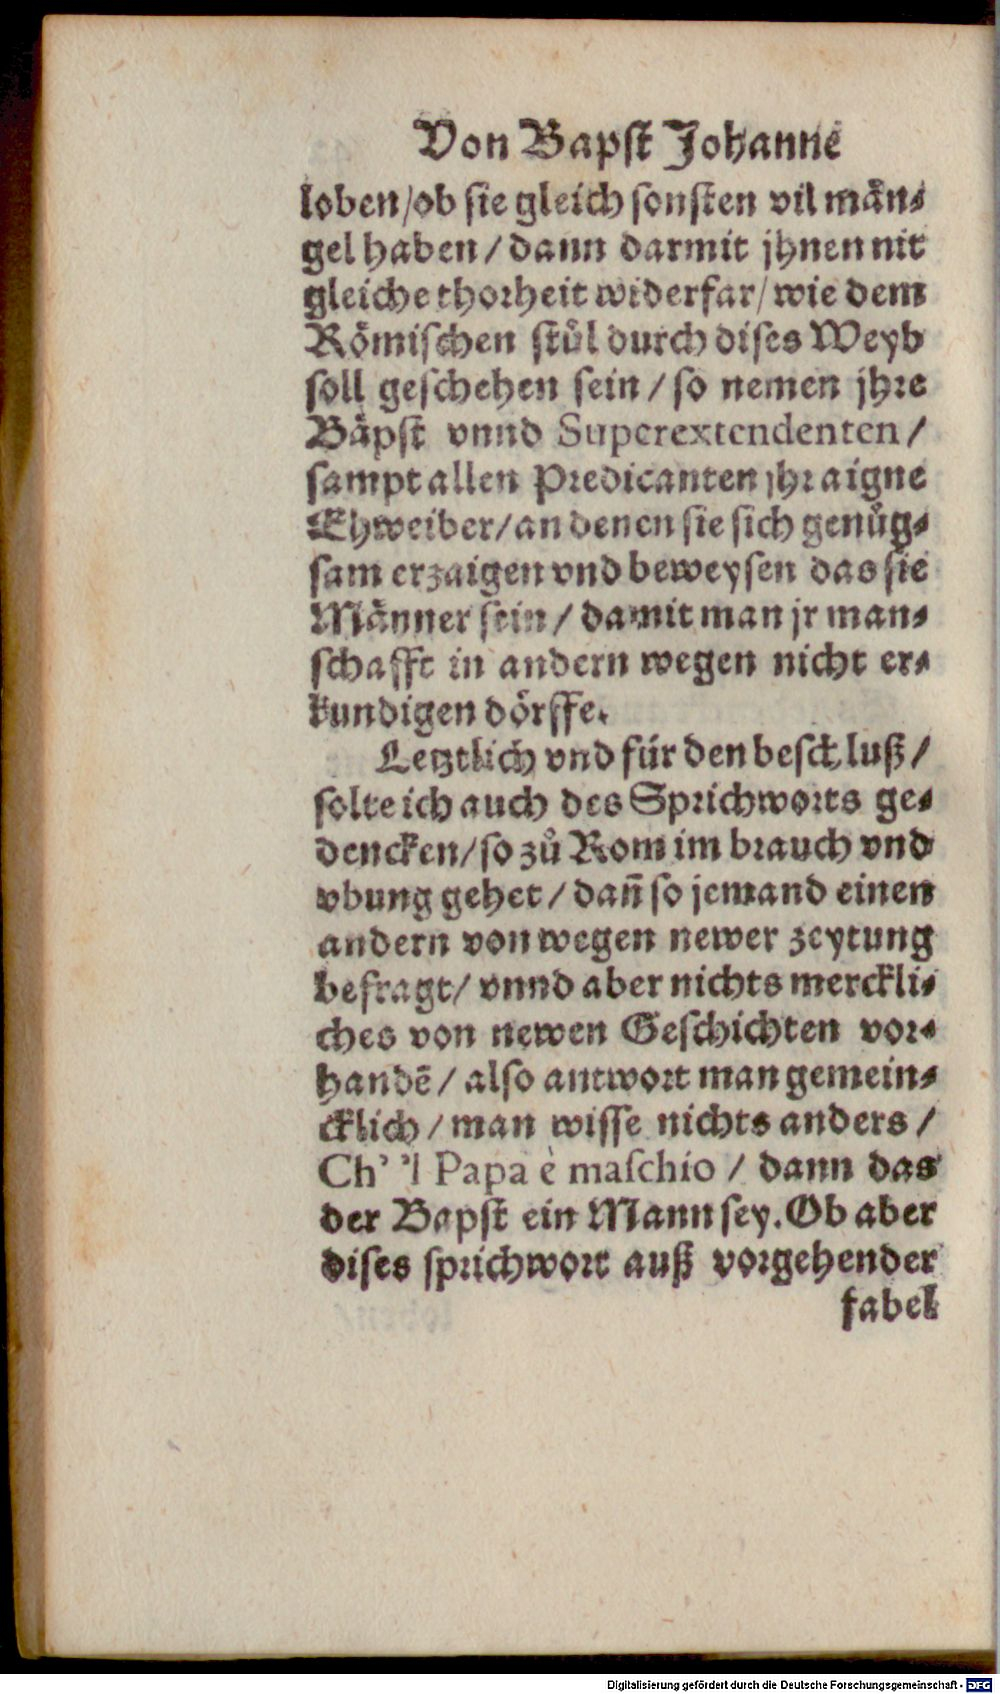 Von Bapst Johanne
loben/ob sie gleich sonsten vil män⸗
gel haben/dann darmit jhnen nit
gleiche thorheit widerfar/wie dem
Römischen stůl durch dises Weyb
soll geschehen sein/so nemen jhre
Bäpst vnnd Superextendenten/
sampt allen Predicanten jhr aigne
Ehweiber/an denen sie sich genůg⸗
sam erzaigen vnd beweysen das sie
Männer sein/damit man jr man⸗
schafft in andern wegen nicht er⸗
kundigen dörffe.
Letztlich vnd für den beschluß/
solte ich auch des Sprichworts ge⸗
dencken/so zů Rom im brauch vnd
vbung gehet/dañ so jemand einen
andern von wegen newer zeytung
befragt/vnnd aber nichts merckli⸗
ches von newen Geschichten vor⸗
handē/also antwort man gemein⸗
cklich/man wisse nichts anders/
Ch' 'l Papa è maschio/dann das
der Bapst ein Mann sey. Ob aber
dises sprichwort auß vorgehender
fabel
Digitalisierung gefördert durch die Deutsche Forschungsgemeinschaft - DFG